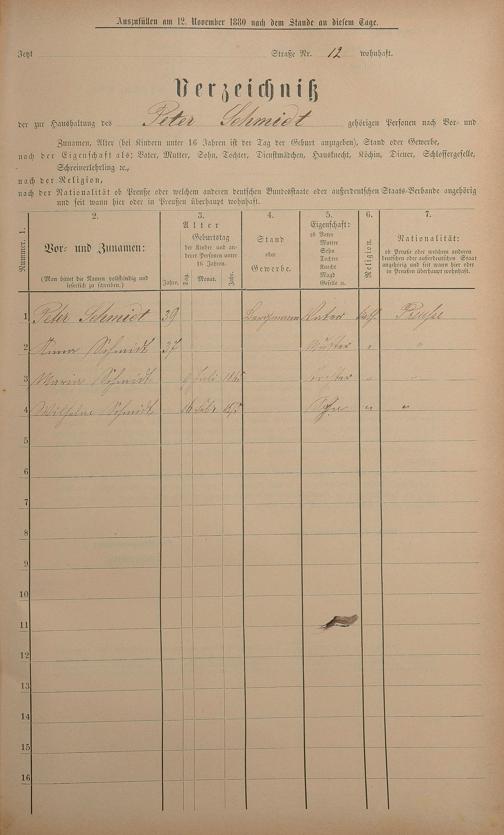 Auszufüllen am 12. November 1880 nach dem Stande an diesem Tage.
Jetzt Straße Nr. 12 wohnhaft.
Verzeichniß
der zur Haushaltung des Peter Schmidt gehörigen Personen nach Vor- und
Zunamen, Alter (bei Kindern unter 16 Jahren ist der Tag der Geburt anzugeben), Stand oder Gewerbe,
nach der Eigenschaft als: Vater, Mutter, Sohn, Tochter, Dienstmädchen, Hausknecht, Köchin, Diener, Schlossergeselle,
Schreinerlehrling ꝛc.,
nach der Religion,
nach der Nationalität ob Preuße oder welchem anderen deutschen Bundesstaate oder außerdeutschen Staats-Verbande angehörig
und seit wann hier oder in Preußen überhaupt wohnhaft.
Nummer. 1.
2.
Vor- und Zunamen:
(Man bittet die Namen vollständig und
leserlich zu schreiben.)
3.
Alter
Geburtstag
der Kinder und an-
derer Personen unter
16 Jahren.
Jahre. Tag. Monat. Jahr.
4.
Stand
oder
Gewerbe.
5.
Eigenschaft:
ob Vater
Mutter
Sohn
Tochter
Knecht
Magd
Geselle u.
6.
Religion.
7.
Nationalität:
ob Preuße oder welchem anderen
deutschen oder außerdeutschen Staat
angehörig und seit wann hier oder
in Preußen überhaupt wohnhaft.
1 Peter Schmidt 39 Bergmann Vater kath. Preuße
2 Anna Schmidt 37 Mutter " "
3 Maria Schmidt Juli Tochter " "
4 Wilhelm Schmidt 16 Febr Sohn " "
5
6
7
8
9
10
11
12
13
14
15
16